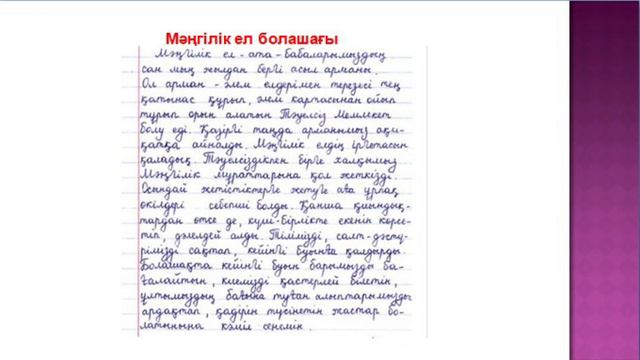 Мәңгілік ел болашағы
Мәңгілік ел - ата-бабаларымыздың
сан мың жылдан бергі асыл арманы.
Ол арман - әлем елдерімен терезесі тең
қатынас құрып, әлем картасынан ойып
тұрып орын алатын Тәуелсіз Мемлекет
болу еді. Қазіргі таңда арманымыз ақи-
қатқа айналды. Мәңгілік елдің іргетасын
қаладық. Тәуелсіздікпен бірге халқымыз
Мәңгілік мұраттарына қол жеткізді.
Осындай жетістіктерге жетуге аға ұрпақ
өкілдері себепші болды. Қанша қиындық-
тардан өтсе де, күш-бірлікте екенін көрсе-
тіп, дәлелдей алды. Тілімізді, салт-дәстү-
рімізді сақтап, кейінгі буынға қалдырды.
Болашақта кейінгі буын барымызды ба-
ғалайтын, киелімізді қастерлей білетін,
ұлтымыздың бағына туған алыптарымызды
ардақтап, қадірін түсінетін жастар бо-
латынына кәміл сенемін.